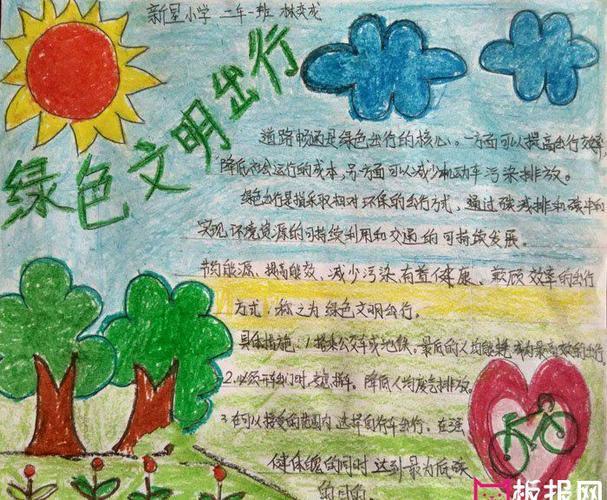 新星小学 二年一班 林奕龙
绿色文明出行
道路畅通是绿色出行的核心。一方面可以提高出行效率
降低社会运行的成本,另方面可以减少机动车污染排放。
绿色出行是指采取相对环保的出行方式,通过碳减排和碳中和
实现环境资源的可持续利用和交通的可持续发展。
节约能源、提高能效、减少污染、有益健康、兼顾效率的出行
方式,称之为绿色文明出行。
具体措施:1.搭乘公交车或地铁,最低的人均能耗,成为最高效的出行。
2.必须开车出门时,拼车,降低人均废态排放。
3.在可以接受的范围内,选择自行车出行,在强
健体魄的同时达到最为低碳
的目的。
板报网